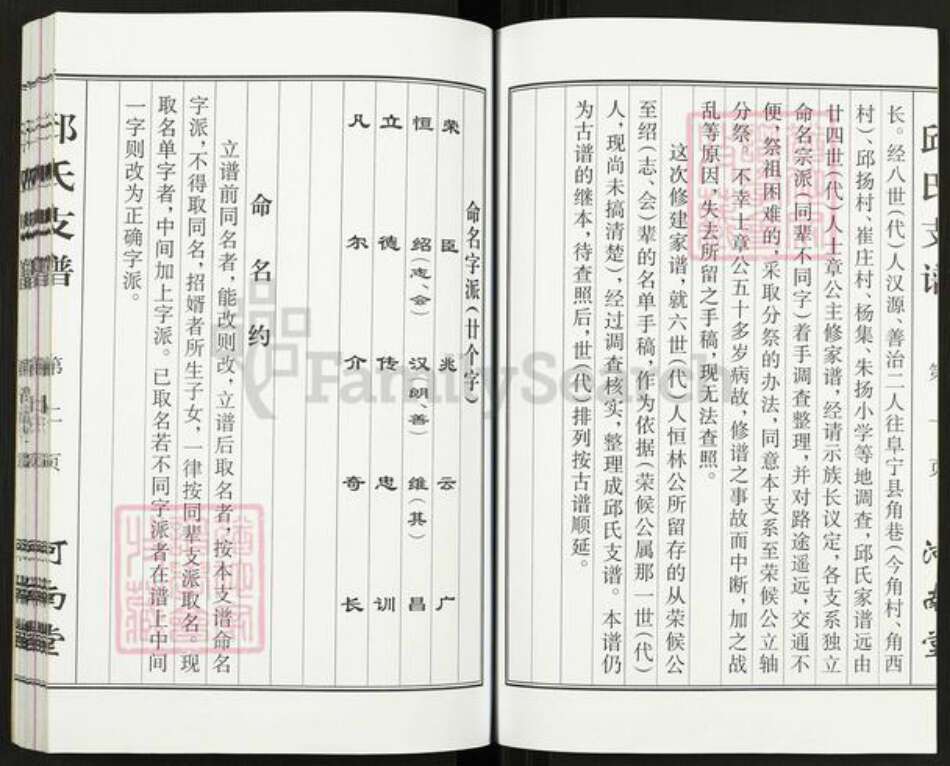 长。经八世(代)人汉源、善治二人往阜宁县角巷(今角村、角西
村)、邱扬村、崔庄村、杨集、朱扬小学等地调查，邱氏家谱远由
廿四世(代)人士章公主修家谱，经请示族长议定，各支系独立
命名宗派(同辈不同字)着手调查整理，并对路途遥远，交通不
便，祭祖困难的，采取分祭的办法，同意本支系至荣候公立轴
分祭。不幸士章公五十多岁病故，修谱之事故而中断，加之战
乱等原因，失去所留之手稿，现无法查照。
这次修建家谱，就六世(代)人恒林公所留存的从荣候公
至绍(志、会)辈的名单手稿，作为依据(荣候公属那一世(代)
人，现尚未搞清楚)，经过调查核实，整理成邱氏支谱。本谱仍
为古谱的继本，待查照后，世(代)排列按古谱顺延。
命名字派(廿个字)
荣 臣 兆 云 广
恒 绍(志、会) 汉(明、善) 维(其) 昌
立 德 传 忠 训
凡 尔 介 奇 长
命名约
立谱前同名者，能改则改，立谱后取名者，按本支谱命名
字派，不得取同名，招婿者所生子女，一律按同辈支派取名。现
取名单字者，中间加上字派。已取名若不同字派者在谱上中间
一字则改为正确字派。
邱氏支谱 第二页 河南堂
FamilySearch